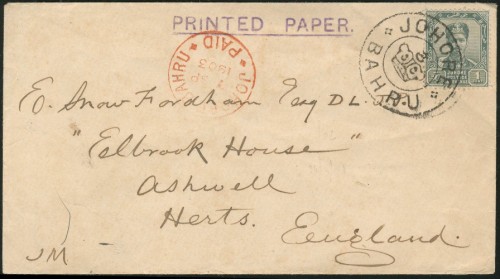 PRINTED PAPER.
JOHORE BAHRU
PAID
1903
JOHORE
1
E. Snow Fordham Esq D L.
"Eelbrook House"
Ashwell
Herts. England.
JM